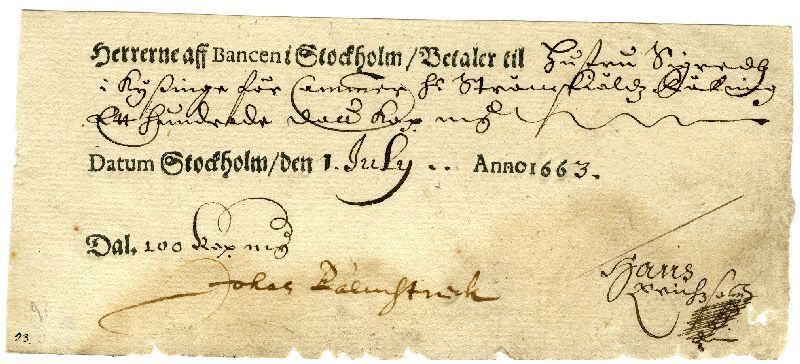 Herrerne aff Bancen i Stockholm / Betaler til Hustru Sigredh
i Kyßinge för Cammer hr Strömfiäldz Räkning
Ett hundrade dalr Kop. mt
Datum Stockholm / den 1. July .. Anno 1663.
Dal. 100 Kop. mt
Johan Palmstruck
Hans
93.